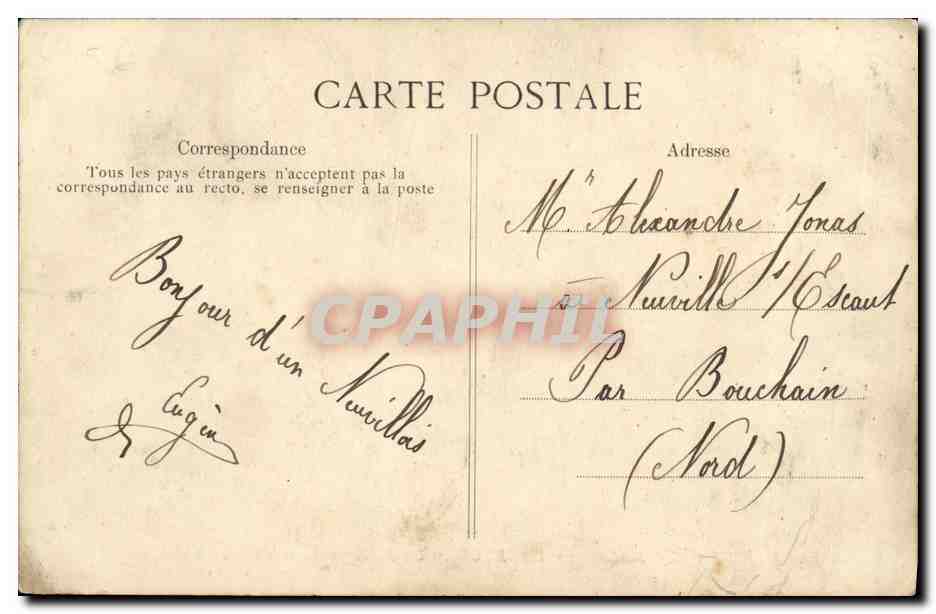 CARTE POSTALE
Correspondance
Tous les pays étrangers n'acceptent pas la
correspondance au recto, se renseigner à la poste
Bonjour d'un Neuvillois
Eugèn
Adresse
Mr. Alexandre Jonas
à Neuville s/Escaut
Par Bouchain
(Nord)
CPAPHIL